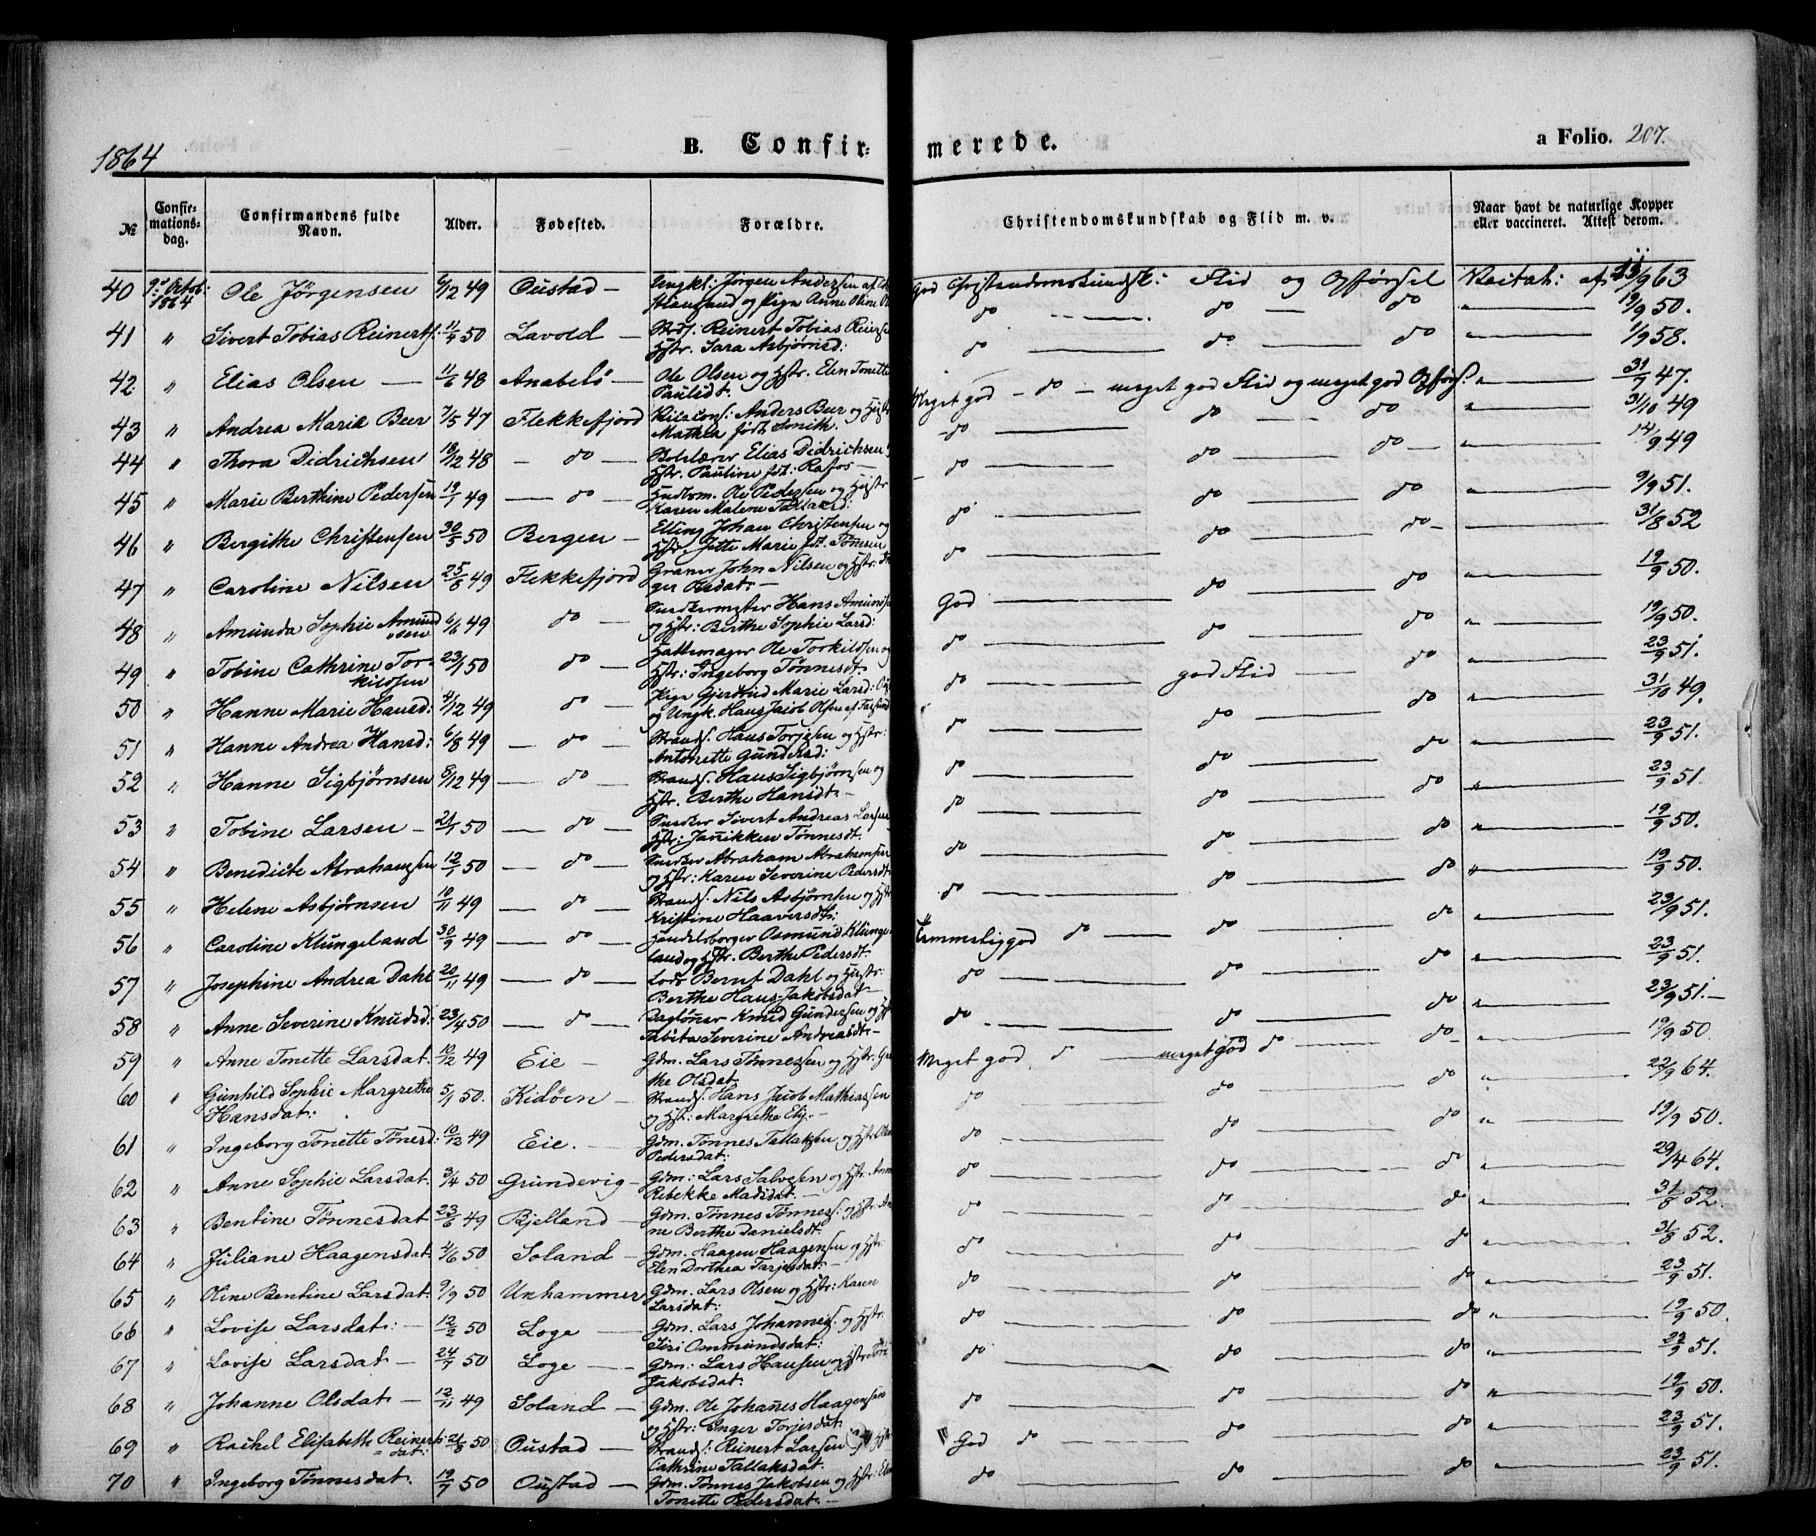 1864
B. Confirmerede.
a Folio. 207.
№ Confirmationsdag. Confirmandens fulde Navn. Alder. Fødested. Forældre. Christendomskundskab og Flid m. v. Naar havt de naturlige Kopper eller vaccineret. Attest derom.
40 2den Octob: 1864 Ole Jörgensen 6/12 49 Oustad — Ungkl: Jörgen Andersen af og Pige Anne Oline God Christendomskundsk: Flid og Opförsel Vaciat: af 13/9 63
41 " Sivert Tobias Reinerts: 11/7 50 Lavold — Strds: Reinert Tobias Hstr. Sara Asbjörnsd: do — do — do " — 19/9 50.
42 " Elias Olsen — 11/6 48 Anabelö — Ole Olsen og Hstr. Elen Tonette Paulsdt. do — do — do " — 1/9 58.
43 " Andrea Marie Beer 7/5 47 Flekkefjord Anders Beer og Hstr Mathea födt Smith. Meget god — do — meget god Flid og meget god Opförs: " — 31/7 47.
44 " Thora Didrichsen 18/12 48 — do — Elias Didrichsen Hstr. Pauline fdt: Rafos — do — do — do " — 31/10 49
45 " Marie Berthine Pedersen 19/1 49 — do — Ole Pedersen og Hstr Karen Malene do — do — do " — 14/9 49
46 " Bergithe Christensen 30/5 50 Bergen — Johan Christensen og Hstr. Jette Marie fdt. Tönesen do — do — do " — 9/9 51.
47 " Caroline Nilsen 25/8 49 Flekkefjord John Nilsen og Hstr: Inger Olsdat: — do — do — do — " — 31/8 52
48 " Amunda Sophie Amundsen 6/6 49 do — Hans Amunds og Hstr: Berthe Sophie Larsd: God — do — do " — 19/9 50.
49 " Tobine Cathrine Torkildsen 23/1 50 do — Hattemager Ole Torkildsen og Hstr: Ingeborg Tönnesdt. do — do — do " — 19/9 50.
50 " Hanne Marie Hansd: 4/12 49 do — Pige Gjertrud Marie Larsd: og Ungk. Hans Jacob Olsen af Farsund do — god Flid — do " — 23/9 51.
51 " Hanne Andrea Hansd: 6/8 49 — do — Strands. Hans Torjesen og Hstr: Antonette Gundersd: do — do — do " — 31/10 49.
52 " Hanne Sigbjörnsen 8/12 49 — do — Strands. Hans Sigbjörnsen og Hstr. Berthe Hansdt. — do — do — do " — 23/9 51.
53 " Tobine Larsen — 21/1 50 — do — Snedker Sivert Andreas Larsen Hstr: Jannikken Tönnesdt. do — do — do " — 23/9 51.
54 " Benedicte Abrahamsen 12/1 50 — do — Snedker Abraham Abrahamsen og Hstr: Karen Severine Pedersdt. do — do — do " — 19/9 50.
55 " Helene Asbjörnsen 10/11 49 — do — Strands. Nils Asbjörnsen og Hstr Kristine Haaversdt: do — do — do " — 19/9 50.
56 " Caroline Klungeland 30/9 49 — do — Handelsborger Osmund Klungeland og Hstr. Berthe Pedersdt: Temmelig god do — do — do " — 23/9 51.
57 " Josephine Andrea Dahl 20/11 49 — do — Lods Bernt Dahl og Hustr: Berthe Hans-Jakobsdat: — do — do — do " — 23/9 51.
58 " Anne Severine Knudsd: 23/4 50 — do — Daglönner Knud Gundersen og Hstr Tabita Severine Andreasdt — do — do — do " — 23/9 51. —
59 " Anne Tonette Larsdat. 10/12 49 Eie — Gdm. Lars Tönnessen og Hstr. Grethe Olsdat. Meget god do meget god do — do — " — 19/9 50.
60 " Gunhild Sophie Margrethe Hansdat: 5/1 50. Kidöen — Strands. Hans Jacob Mathiassen og Hstr: Margrethe El — do — do — do " — 22/9 64.
61 " Ingeborg Tonette Tönesd: 10/12 49 Eie. — Gdm. Tönnes Tallaksen og Hstr. Olene Pedersdat: do — do — do " — 19/9 50.
62 " Anne Sophie Larsdat. 3/4 50 Grundevig — Gdm: Lars Salvesen og Hstr. Anne Rebekke Madsdat. — do — do — do " — 29/4 64.
63 " Bentine Tönnesdat 23/6 49 Bjelland — Gdm. Tönnes Tönness: og Hstr. Anne Berthe Danielsdt: do — do — do " — 31/8 52.
64 " Juliane Haagensdat 4/6 50 Soland — Gdm. Haagen Haagensen og Hstr. Elen Dorthea Tarjesdat: do — do — do " — 31/8 52.
65 " Oline Bentine Larsdat. 9/9 50 Unhammer Gdm. Lars Olsen og Hstr: Karen Larsdat: do — do — do " — 23/9 51.
66 " Lovise Larsdat: — 12/2 50 Loge — Gdm. Lars Johannes: og Hstr. Siri Ommundsdat: do — do — do " — 19/9 50.
67 " Lovise Larsdat — 24/7 50 Loge — Gdm: Lars Hansen og Hstr. Jakobsdat: do — do — do " — 22/9 51.
68 " Johanne Olsdat — 12/11 49 Soland — Gdm. Ole Johanes Haagensen og Hstr: Enger Torjesdat: do — do — do " — 19/9 50.
69 " Rachel Elisabette Reinertsdat: 21/8 50 Oustad — Strands: Reinert Larsen og Hstr Cathrine Tallaksdat: God do — do — do " — 23/9 51.
70 " Ingeborg Tönnesdat. 19/7 50 Oustad — Gdm: Tönnes Jakobsen og Hstr: Elen Tonette Pedersdat: — do — do — do " — 23/9 51.